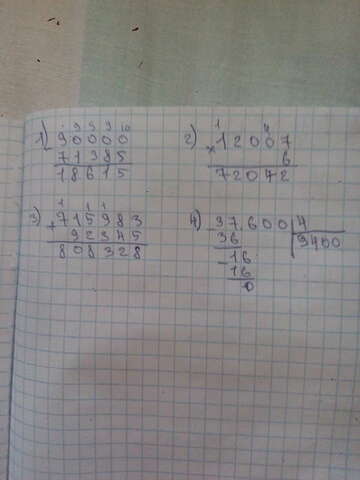 1) . 9 9 9 10
90000
- 71385
18615
2) 1 4
× 12007
6
72042
3) 1 1 1
+ 715983
92345
808328
4) 37.600 | 4
36 9400
- 16
16
0